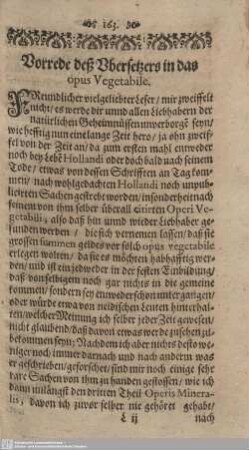 163.
Vorrede deß Vbersetzers in das
opus Vegetabile.
FReundlicher vielgeliebter Leser / mir zweiffelt
nicht / es werde dir unnd allen Liebhabern der
natürlichen Geheimnüssen unverborgen seyn /
wie hefftig nun eine lange Zeit hero / ja ohn zweif-
fel von der Zeit an / da zum ersten mahl entweder
noch bey Lebē Hollandi oder doch bald nach seinem
Tode / etwas von dessen Schrifften an Tag kom-
men / nach wohlgedachten Hollandi noch unpub-
licirten Sachen gestrebt worden / insonderheit nach
seinem von ihm selber überall citirten Operi Ve-
getabili; also daß hin unnd wieder Liebhaber ge-
funden werden / die sich vernemen lassen / daß sie
grossen summen geldes vor solch opus vegetabile
erlegen wolten / da sie es möchten habhafftig wer-
den / und ist ein jedweder in der festen Einbildung /
daß von selbigem noch gar nichts in die gemeine
kommen / sondern sey entweder schon untergangen /
oder würde etwa von neidischen Leuten hinterhal-
ten / welcher Meinung ich selber jeder Zeit gewesen /
nicht glaubend / daß davon etwas werde zu sehen zu
bekommen seyn; Nachdem ich aber nichts desto we-
niger noch immer darnach und nach anderm was
er geschrieben / geforschet / sind mir noch einige sehr
rare Sachen von ihm zu handen gestossen / wie ich
dann unlängst den dritten Theil Operis Minera-
lis, davon ich zuvor selber nie gehöret gehabt /
L ij
nach